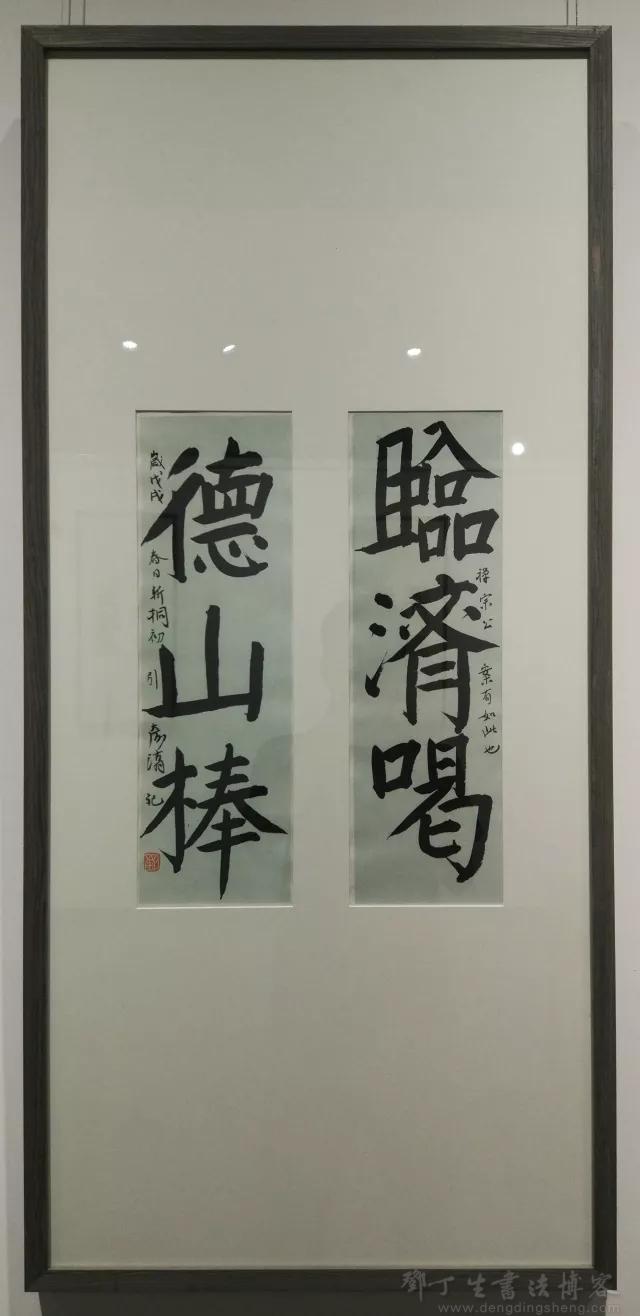 臨濟喝
禪宗公案有如此也
德山棒
歲戊戌春日新桐初引
記
鄧丁生書法博客
www.dengdingsheng.com